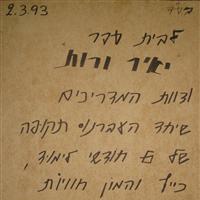 בס"ד
2.3.93
לבית ספר
יאיר ורות
וצוות המדריכים
שיחד העברנו תקופה
של 6 חודשי לימוד,
כייף והמון חוויות